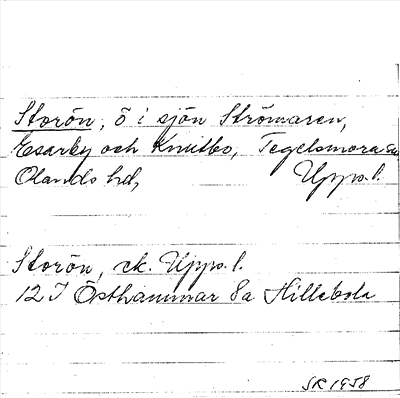 Storön, ö i sjön Strömaren,
Esarby och Knutbo, Tegelsmora sn
Olands hd, Upps. l.
Storön, ek. Upps. l.
12 I Östhammar 8a Hillebola
SR 1958